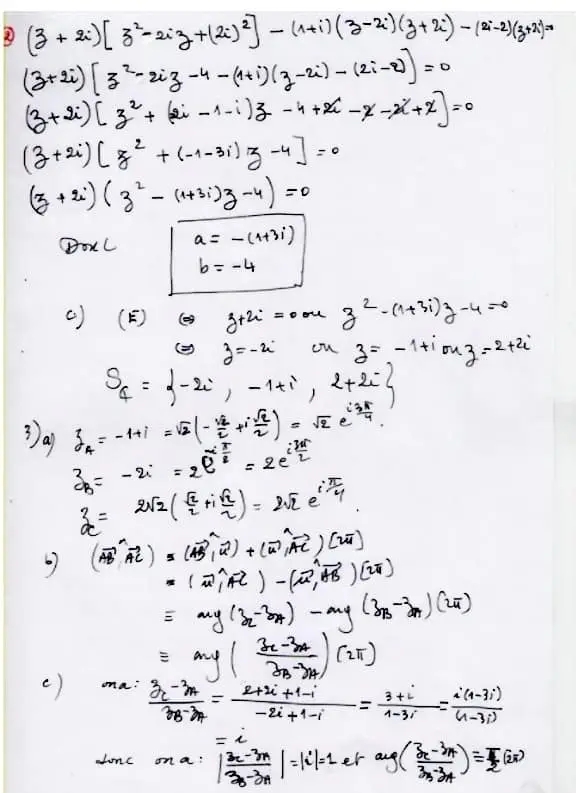 2 (z + 2i)[z² - 2iz + (2i)²] - (1+i)(z-2i)(z+2i) - (2i-2)(z+2i)=0
(z+2i)[z² - 2iz - 4 - (1+i)(z-2i) - (2i-2)] = 0
(z+2i)[z² + (2i - 1 - i)z - 4 + 2i - 2 - 2i + 2] = 0
(z+2i)[z² + (-1-3i)z - 4] = 0
(z + 2i)(z² - (1+3i)z - 4) = 0
Donc a = -(1+3i)
b = -4
c) (E) ⇔ z+2i = 0 ou z² - (1+3i)z - 4 = 0
⇔ z = -2i ou z = -1+i ou z = 2+2i
S_ℂ = {-2i, -1+i, 2+2i}
3) a) z_A = -1+i = √2(-√2/2 + i√2/2) = √2 e^{i3π/4}.
z_B = -2i = 2e^{-iπ/2} = 2e^{i3π/2}
z_C = 2√2(√2/2 + i√2/2) = 2√2 e^{iπ/4}.
b) (AB→, AC→) ≡ (AB→, u→) + (u→, AC→) [2π]
≡ (u→, AC→) - (u→, AB→) [2π]
≡ arg(z_C - z_A) - arg(z_B - z_A) (2π)
≡ arg((z_C - z_A)/(z_B - z_A)) [2π]
c) on a : (z_C - z_A)/(z_B - z_A) = (2+2i+1-i)/(-2i+1-i) = (3+i)/(1-3i) = i(1-3i)/(1-3i)
= i
donc on a : |(z_C - z_A)/(z_B - z_A)| = |i| = 1 et arg((z_C - z_A)/(z_B - z_A)) ≡ π/2 (2π)